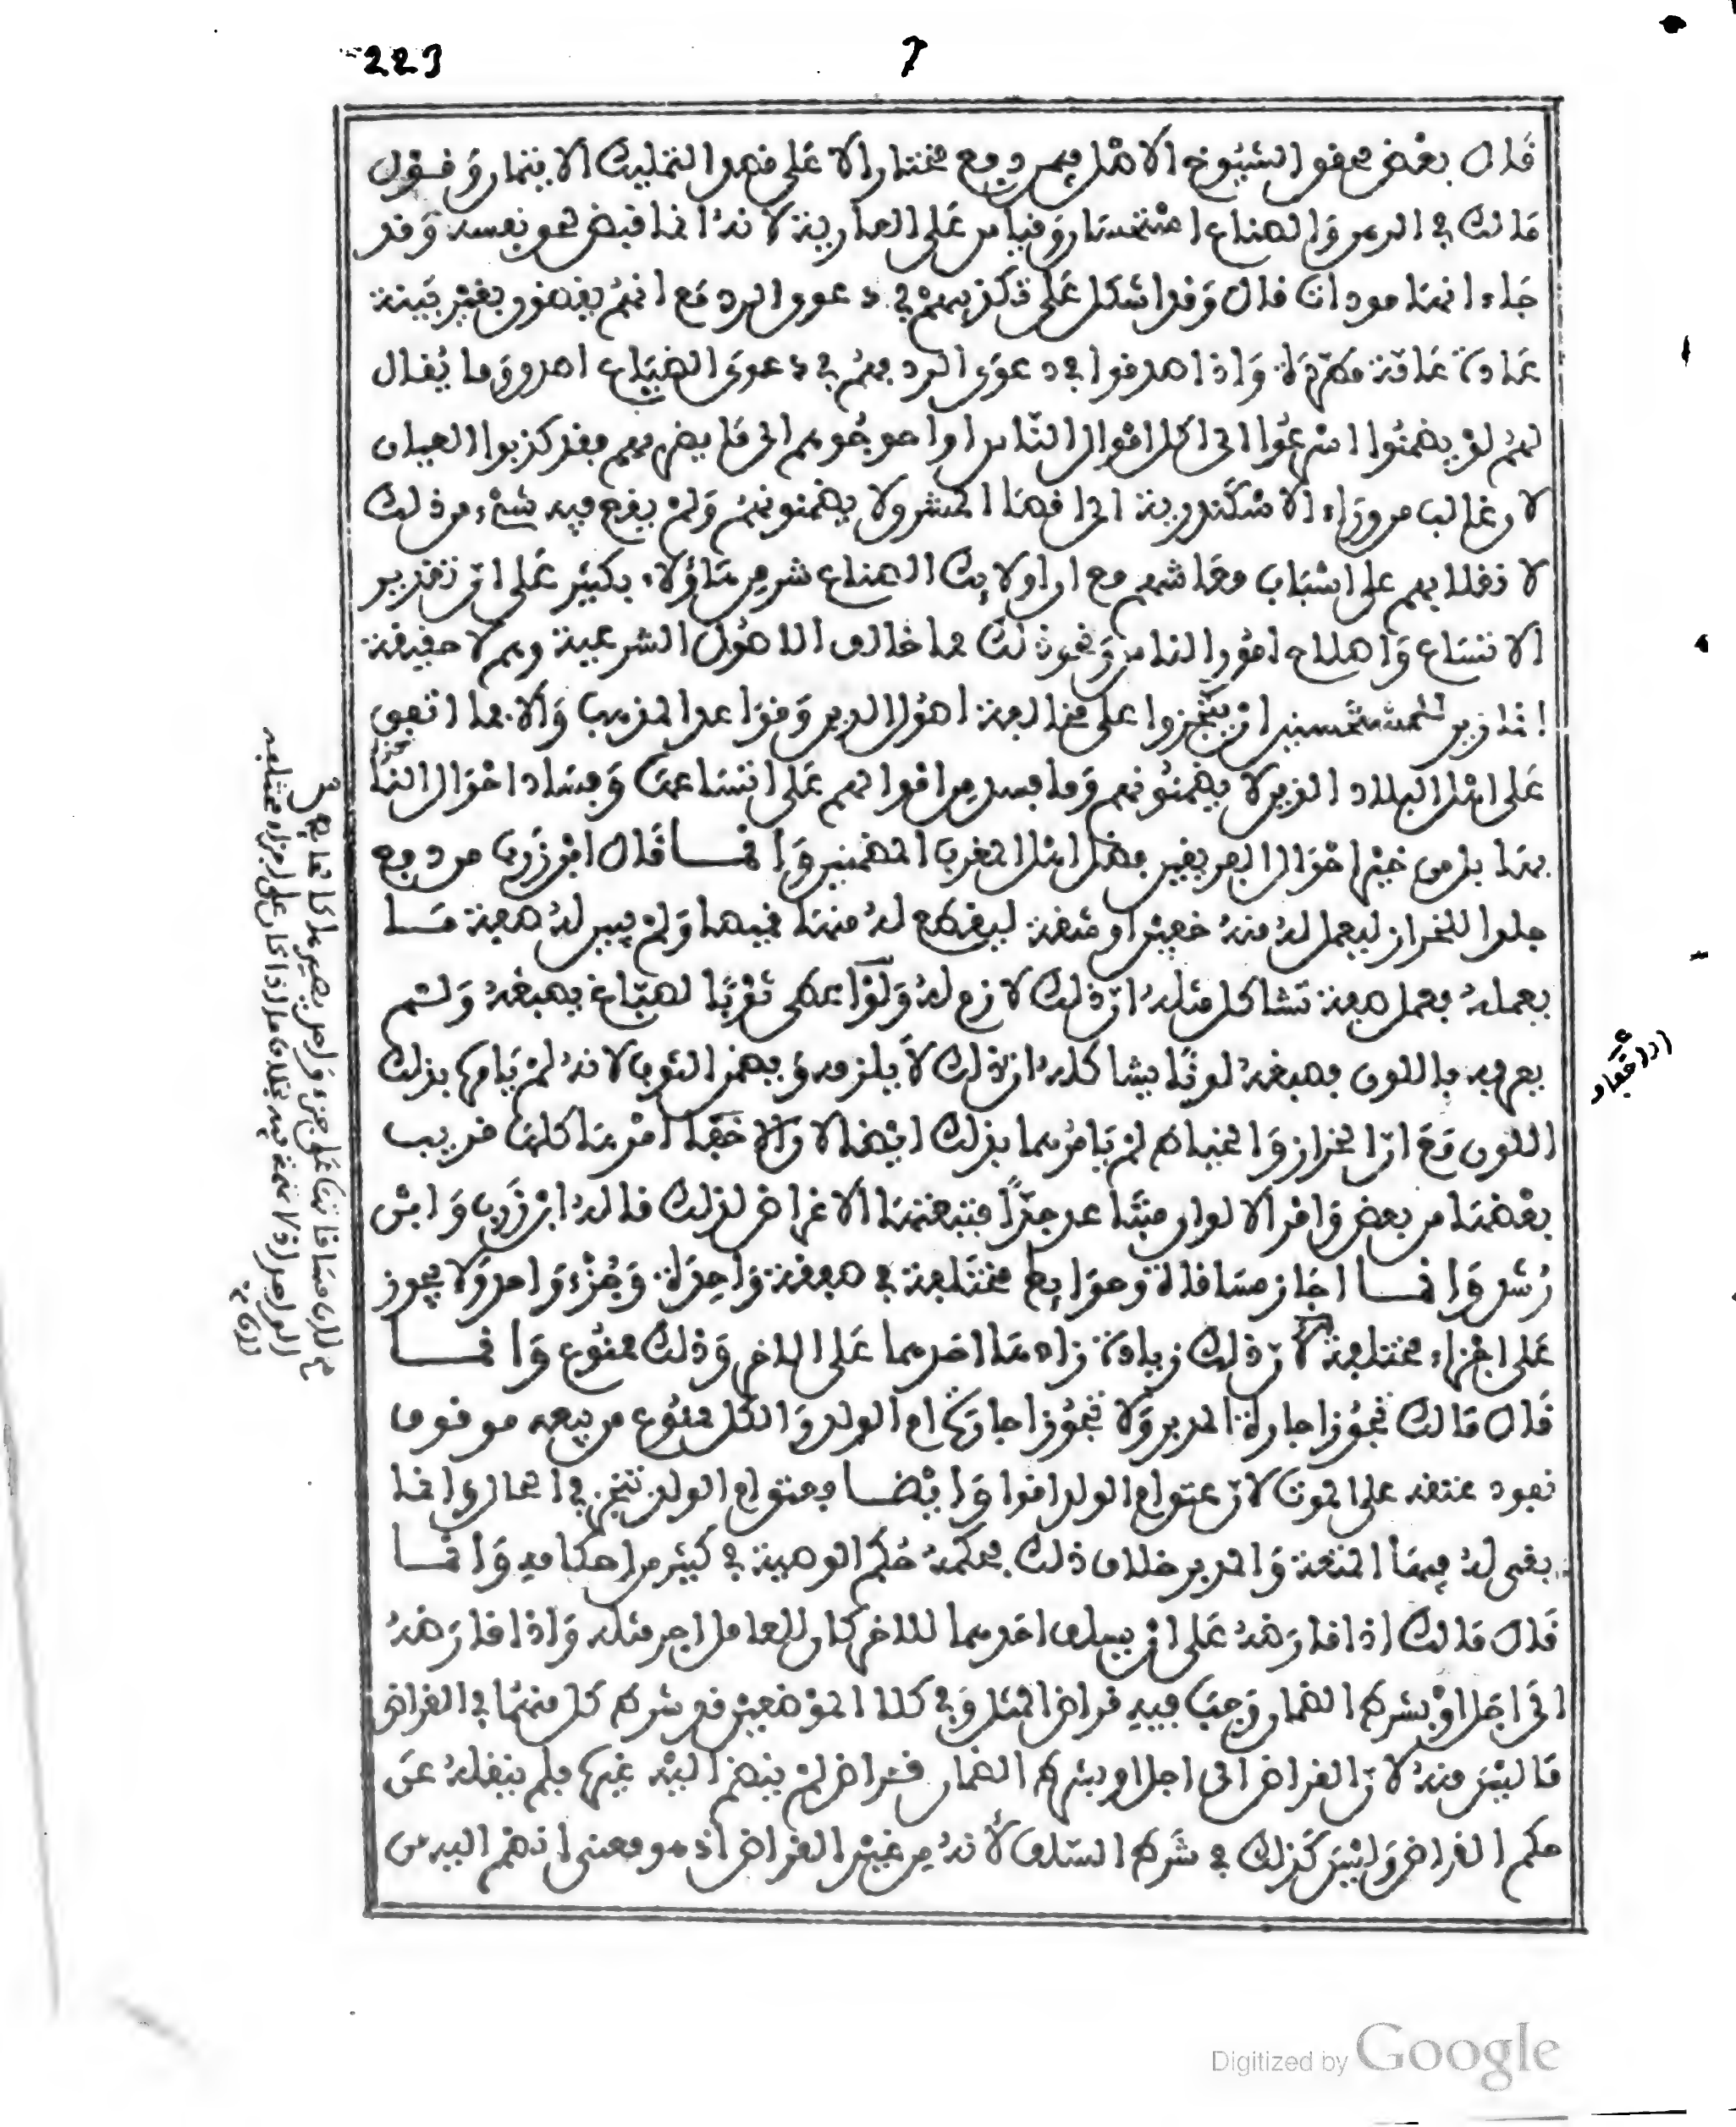 223
7
قال بعض محققو الشيوخ الاصل فيمن دفع مختارا لا على قصد التمليك الايتمار وقول
مالك في الرهن والصناع استحسان وقياس على العارية لانه انما قبض لحق نفسه وقد
جاء انها مودات قال وقد اشكل على تكذيبهم في دعوى الرد مع انهم يقبضون بغير بينة
عادة عامة مطردة واذا صدقوا في دعوى الرد فهم في دعوى الضياع اصدق وما يقال
لهم لو يضمنوا اسرعوا الى اكل اموال الناس او احوجوهم الى ما يضر بهم فقد كذبوا العيان
لان غالب من وراء الاسكندرية الى اقصا المشرق لا يضمنونهم ولم يقع فيه شيء من ذلك
لا نقلا بهم على اسباب معاشهم مع ان اولايك الصناع شر من هاؤلاء بكثير على ان تقدير
الاتساع واصلاح امور الناس ونحو ذلك مما خالف الاصول الشرعية وهم لا حقيقة
اثار بر للمستحسنين ان يتجزوا على مخالفة اصول الدين وقواعد المذهب والا فما اتفق
على اهل البلاد الذين لا يضمنونهم وما فسد من اقوالهم على اتساعها وفساد احوال الناس
بها بل من خبر احوال الفريقين فضل اهل المغرب المضمنين وانما قال ابن زرب من دفع
جلدا للخراز ليعمل له منه خفين او شقة ليقطع له منها قميصا ولم يبين له صفة ما
يعمله فعمل صفة تشاكل مثله ان ذلك لازم له ولو اعطى ثوبا لصباغ يصبغه ولم
يعرفه باللون فصبغه لونا يشاكله ان ذلك لا يلزمه ويضمن الثوب لانه لم يامره بذلك
اللون مع ان الخراز والخياط لم يامرهما بذلك ايضا لان الاخفاف امرها كلها قريب
بعضها من بعض وامر الالوان متباعد جدا فتبعتها الاغراض لذلك قاله ابن زرب وابن
رشد وانما اجاز مساقاة وحوايط مختلفة في صفقة واحدة وجزء واحد ولا يجوز
على اجزاء مختلفة لان ذلك زيادة زادها احدهما على الاخر وذلك ممنوع وانما
قال مالك تجوز اجارة المدبر ولا تجوز اجارة ام الولد والكل ممنوع من بيعه موقوف
نفوذ عتقه على الموت لان عتق ام الولد اقوا وايضا فعتق ام الولد تنجز في الحال وانما
بقى له فيها المتعة والمدبر خلاف ذلك فحكمه حكم الوصية في كثير من احكامه وانما
قال مالك اذا قارضه على ان يسلف احدهما للاخر كان للعامل اجر مثله واذا قارضه
الى اجل او بشرط الضمان وجب فيه قراض المثل وفي كلا الموضعين قد شرط كل منهما في القراض
ما ليس منه لان القراض الى اجل او بشرط الضمان قراض لم ينضم اليه غيره فلم ينقله عن
حكم القراض وليس كذلك في شرط السلف لانه من غير القراض اذ هو معنى انضم اليه من
Digitized by Google